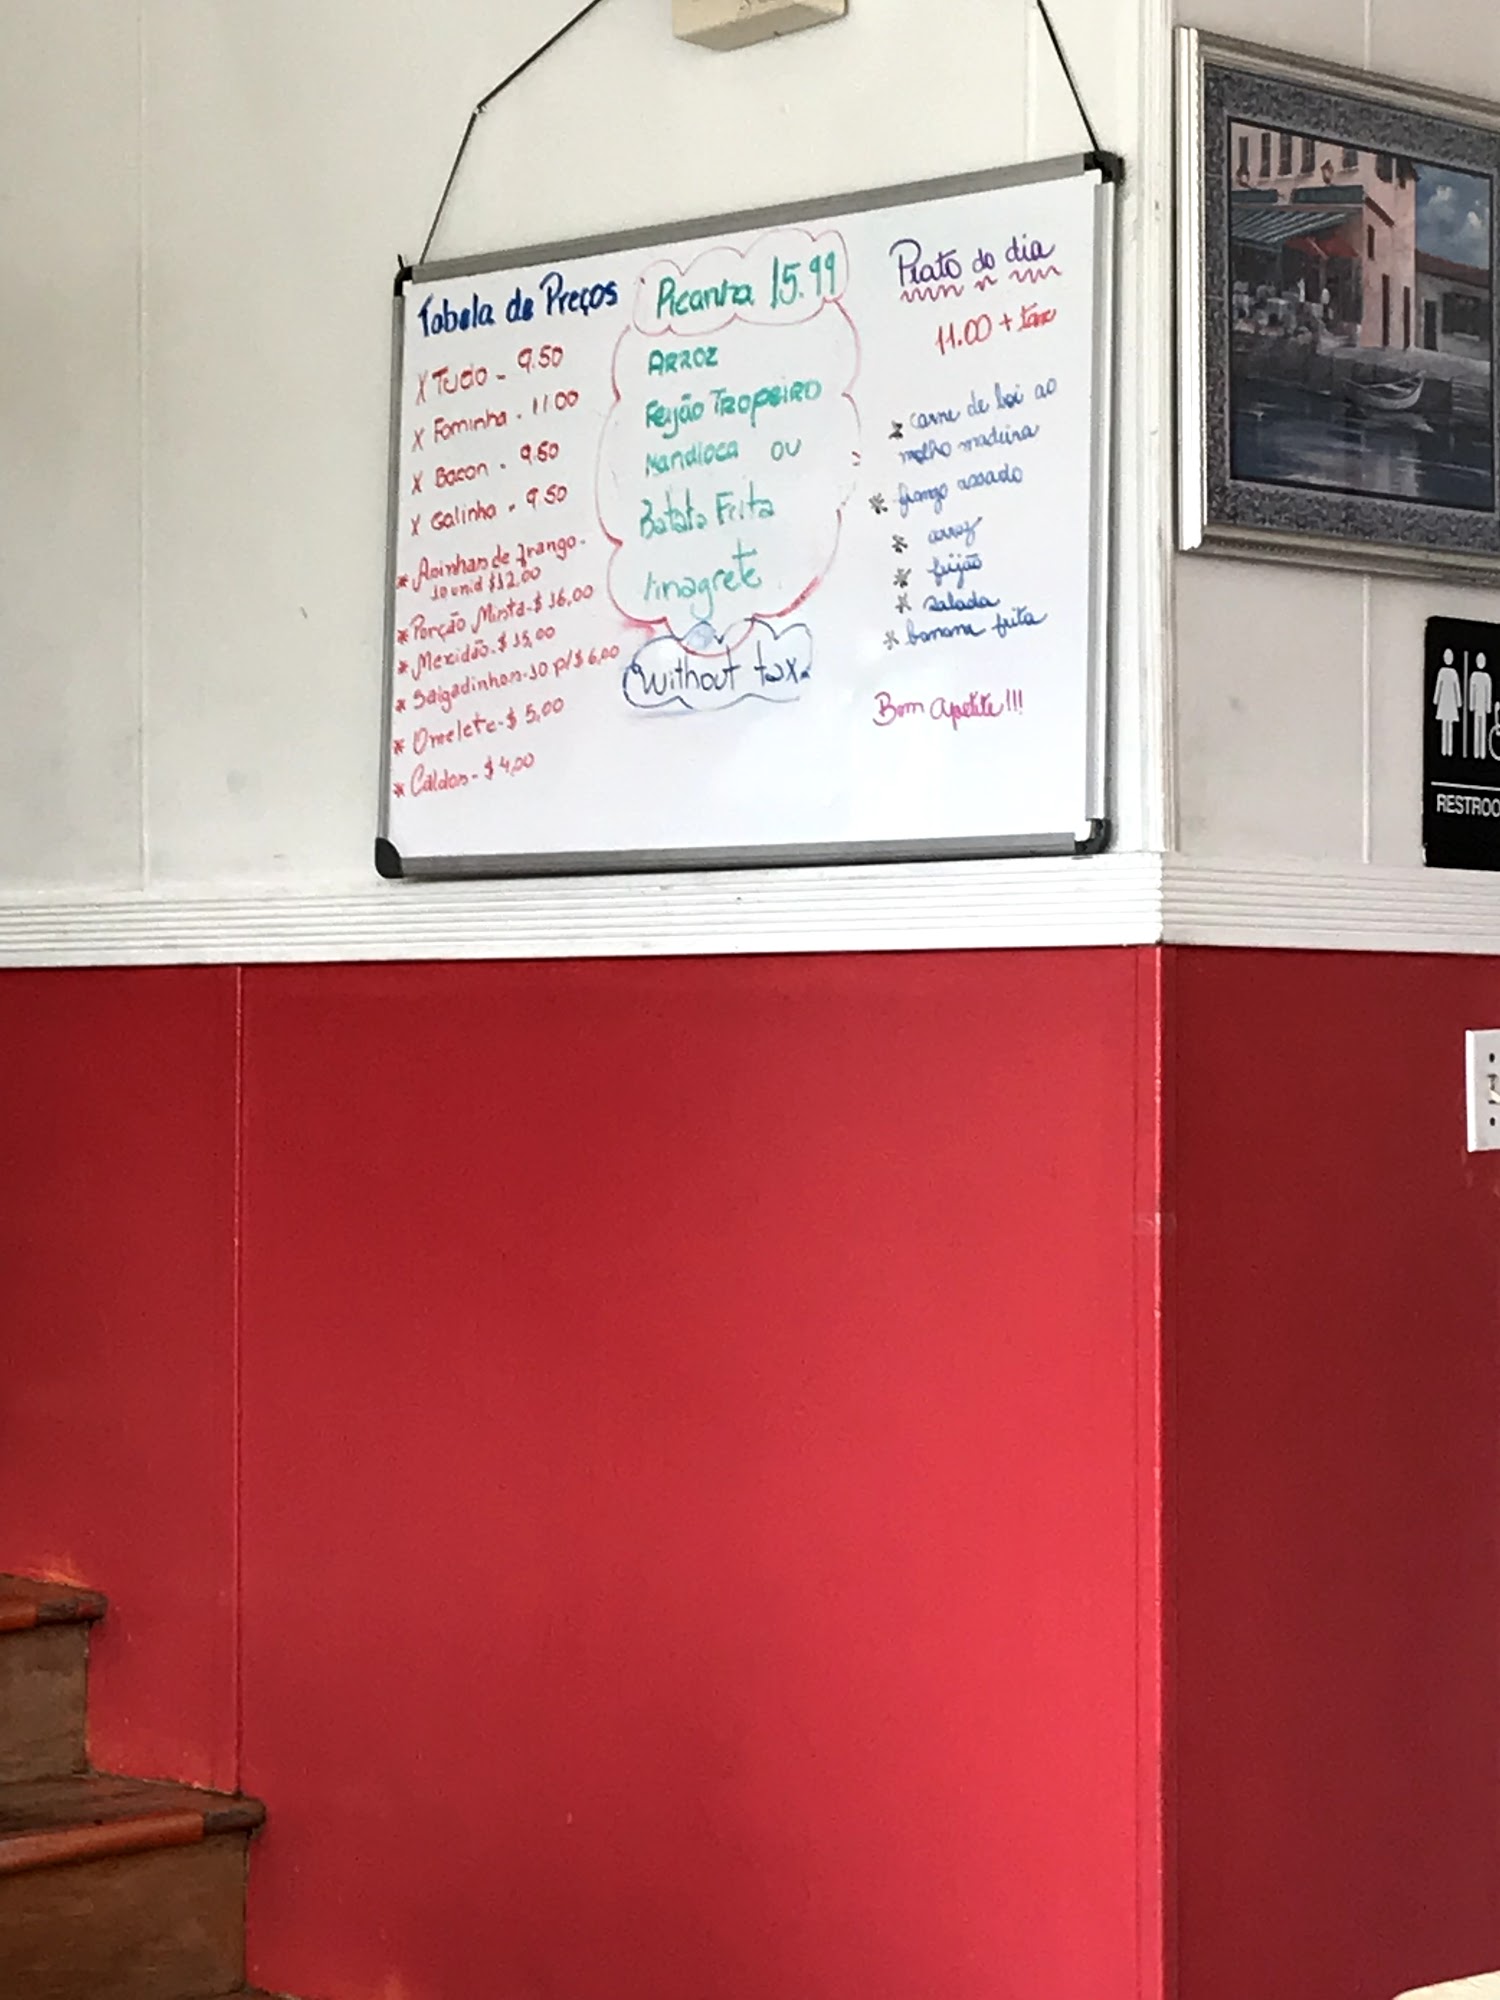 Tabela de Preços
X Tudo - 9.50
X Fominha - 11.00
X Bacon - 9.50
X Galinha - 9.50
* Asinhas de frango -
10 unid $12,00
* Porção Mista - $ 16,00
* Mexidão - $ 15,00
* Salgadinhos - 10 p/ $ 6,00
* Omelete - $ 5,00
* Caldos - $ 4,00
Picanha 15.99
ARROZ
Feijão TROPEIRO
Mandioca ou
Batata Frita
Vinagrete
Without tax.
Prato do dia
11.00 + tax
* carne de boi ao
molho madeira
* frango assado
* arroz
* feijão
* salada
* banana frita
Bom apetite!!!